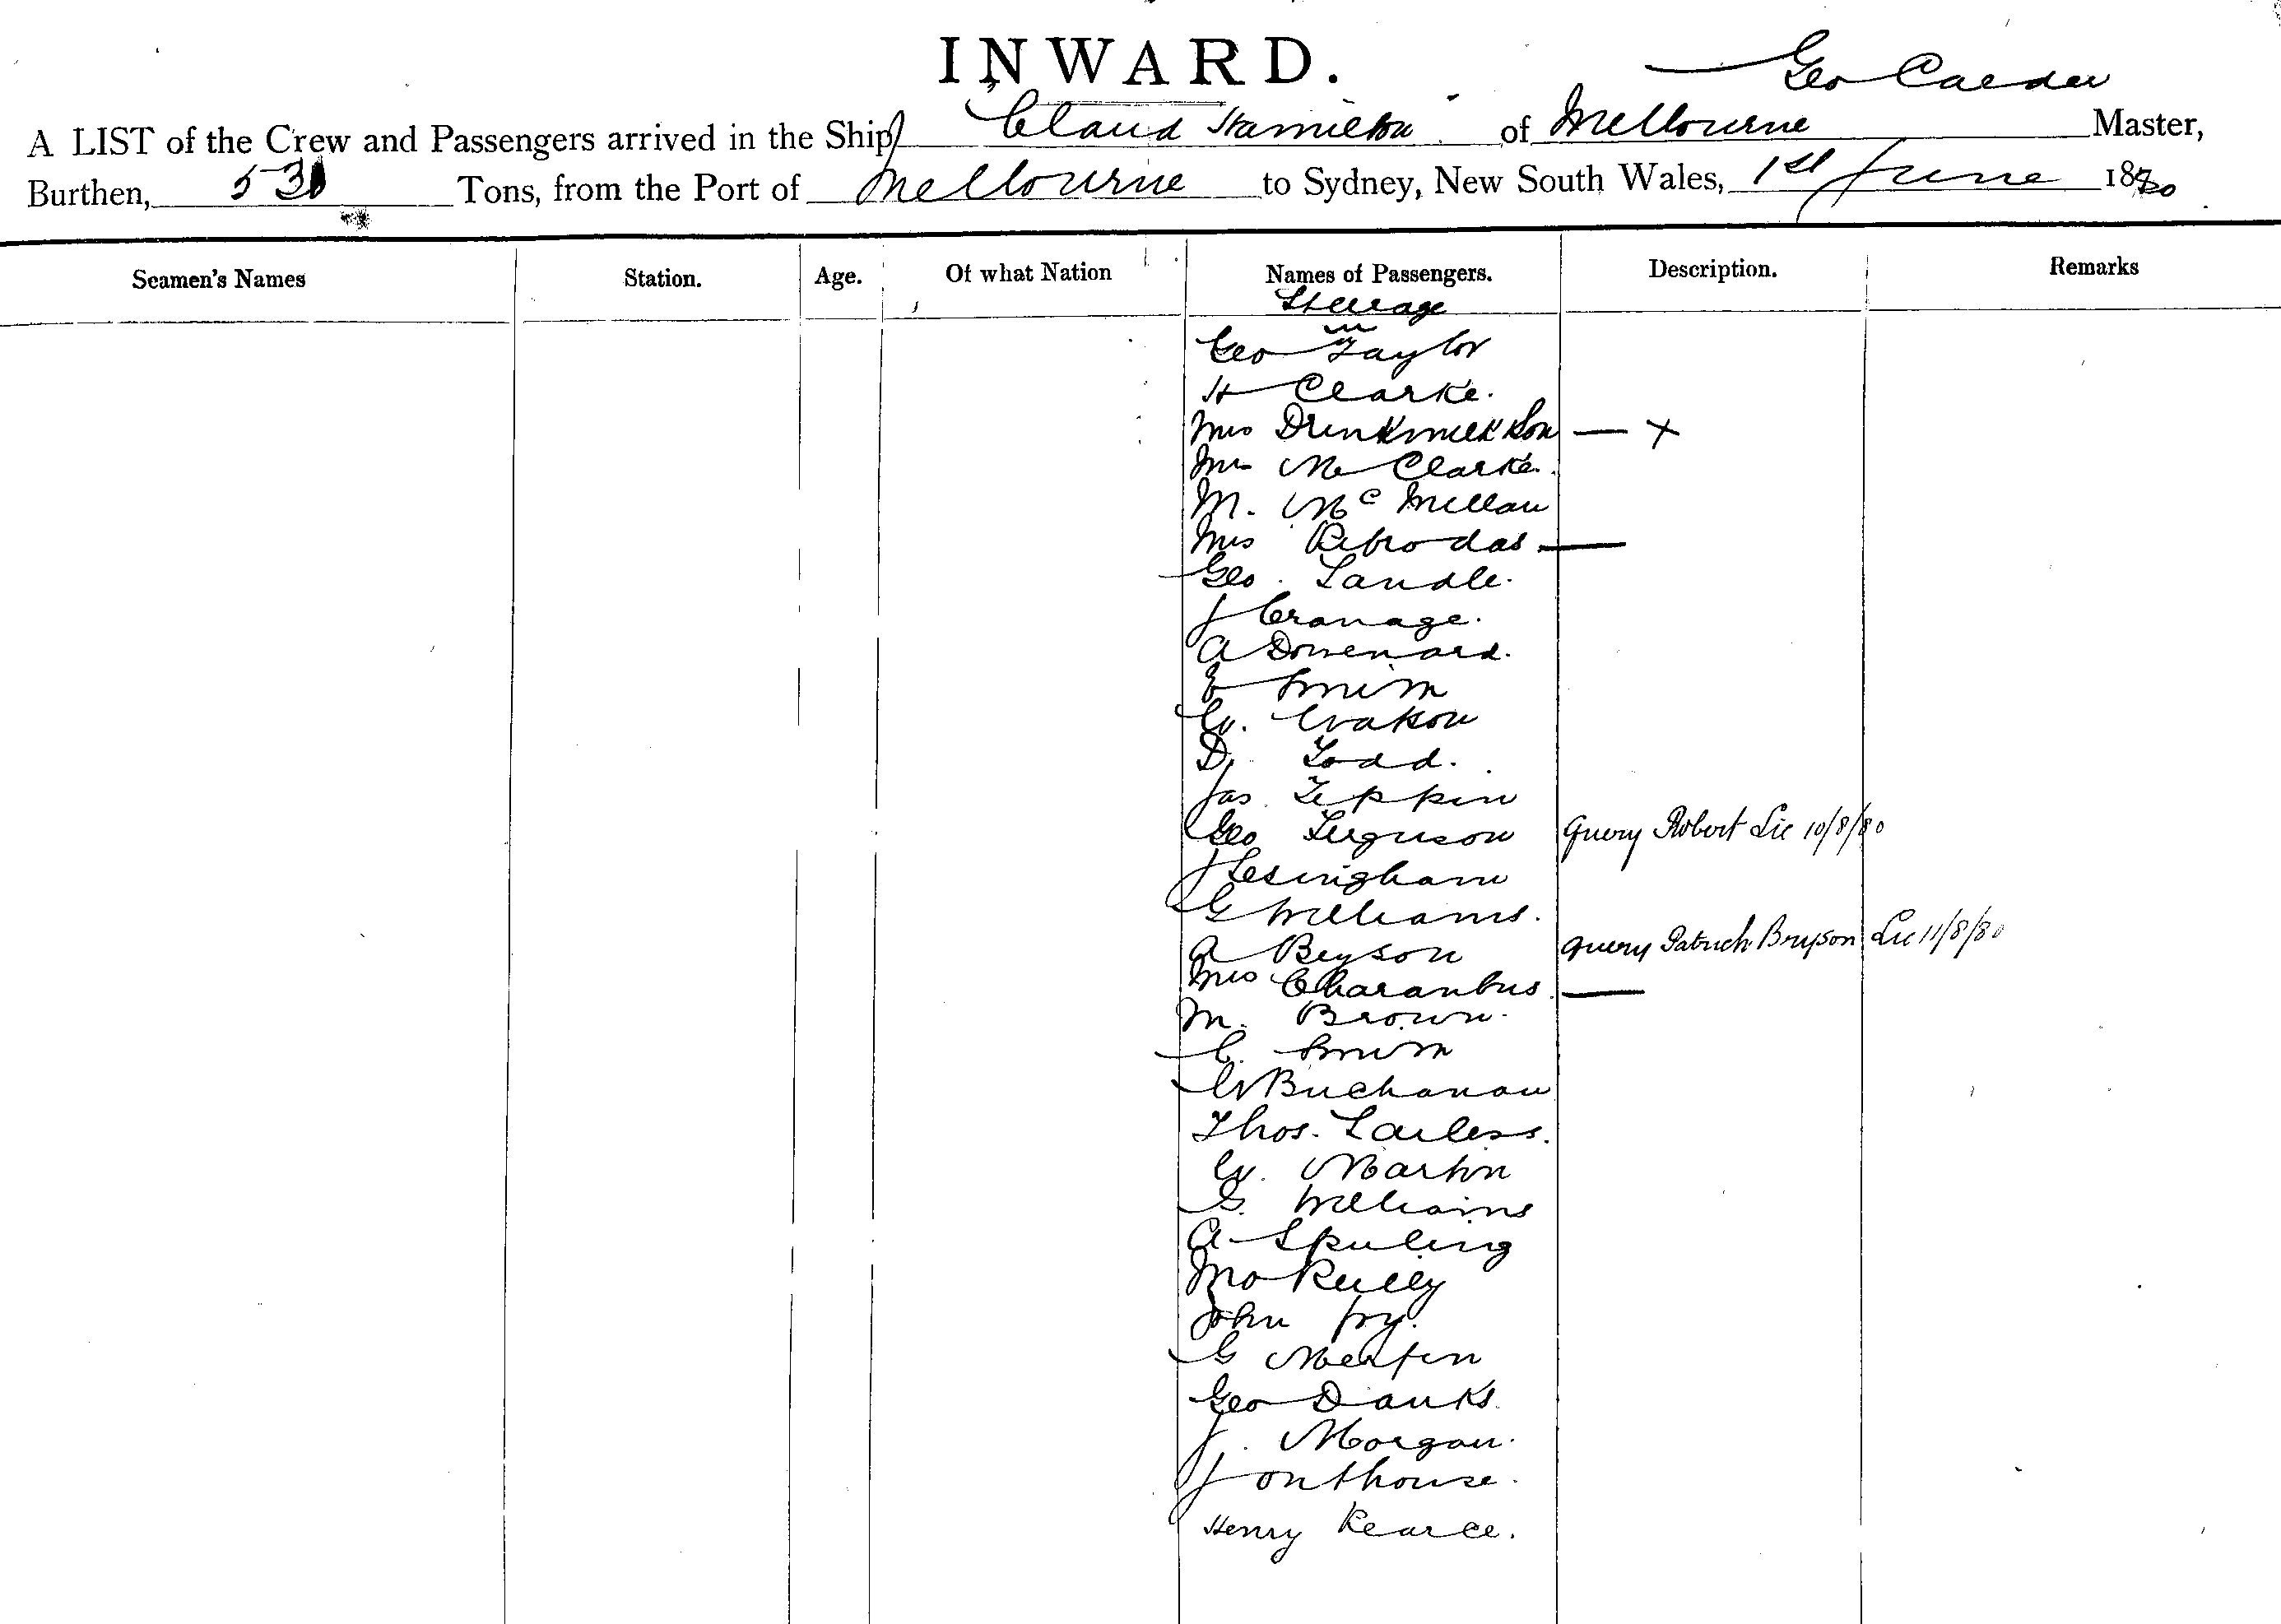 INWARD.
Geo Calder
A LIST of the Crew and Passengers arrived in the Ship Claud Hamilton of Melbourne Master,
Burthen, 530 Tons, from the Port of Melbourne to Sydney, New South Wales, 1st June 1880
Seamen's Names Station. Age. Of what Nation Names of Passengers. Description. Remarks
Steerage
Geo Taylor
H Clarke.
Mrs & Son — X
Mrs M Clarke.
M. McMillan
Mrs —
Geo.
J Cranage.
A
E Smith
W. Watson
D. Todd.
Jas.
Geo Ferguson Query Robert Lic 10/8/80
J Lesingham
G Williams.
A Beyson query Patrick Bryson Lic 11/8/80
Mrs —
M. Brown.
C. Smith
W Buchanan
Thos.
W. Martin
G. Williams
A
Reilly
John Fry.
G
Geo Danks.
J. Morgan.
J Onthouse.
Henry Pearce.